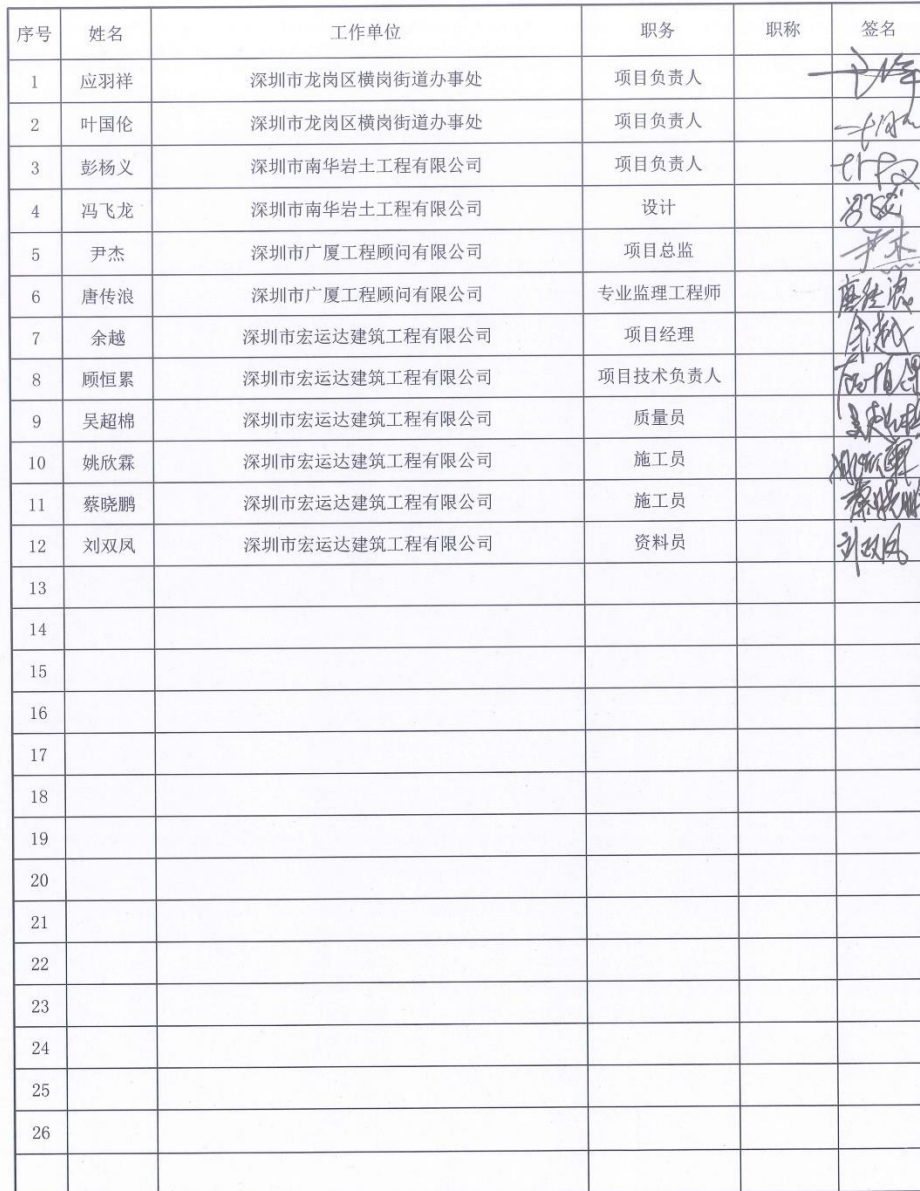 序号 姓名 工作单位 职务 职称 签名
1 应羽祥 深圳市龙岗区横岗街道办事处 项目负责人
2 叶国伦 深圳市龙岗区横岗街道办事处 项目负责人
3 彭杨义 深圳市南华岩土工程有限公司 项目负责人
4 冯飞龙 深圳市南华岩土工程有限公司 设计 冯飞龙
5 尹杰 深圳市广厦工程顾问有限公司 项目总监 尹杰
6 唐传浪 深圳市广厦工程顾问有限公司 专业监理工程师 唐传浪
7 余越 深圳市宏运达建筑工程有限公司 项目经理 余越
8 顾恒累 深圳市宏运达建筑工程有限公司 项目技术负责人
9 吴超棉 深圳市宏运达建筑工程有限公司 质量员
10 姚欣霖 深圳市宏运达建筑工程有限公司 施工员
11 蔡晓鹏 深圳市宏运达建筑工程有限公司 施工员 蔡晓鹏
12 刘双凤 深圳市宏运达建筑工程有限公司 资料员 刘双凤
13
14
15
16
17
18
19
20
21
22
23
24
25
26